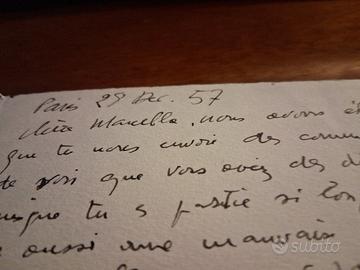 Paris 29 Dec. 57
Chère Marcella, nous avons é
que tu nous envoie des commu
te voi que vous avez des d
isque tu es partie si lon
aussi une mauvais
subito